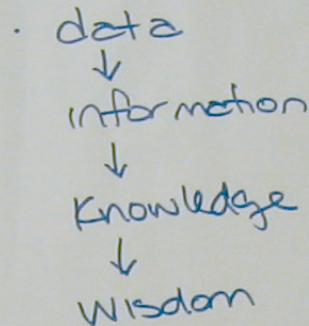 · data
↓
information
↓
Knowledge
↓
Wisdom